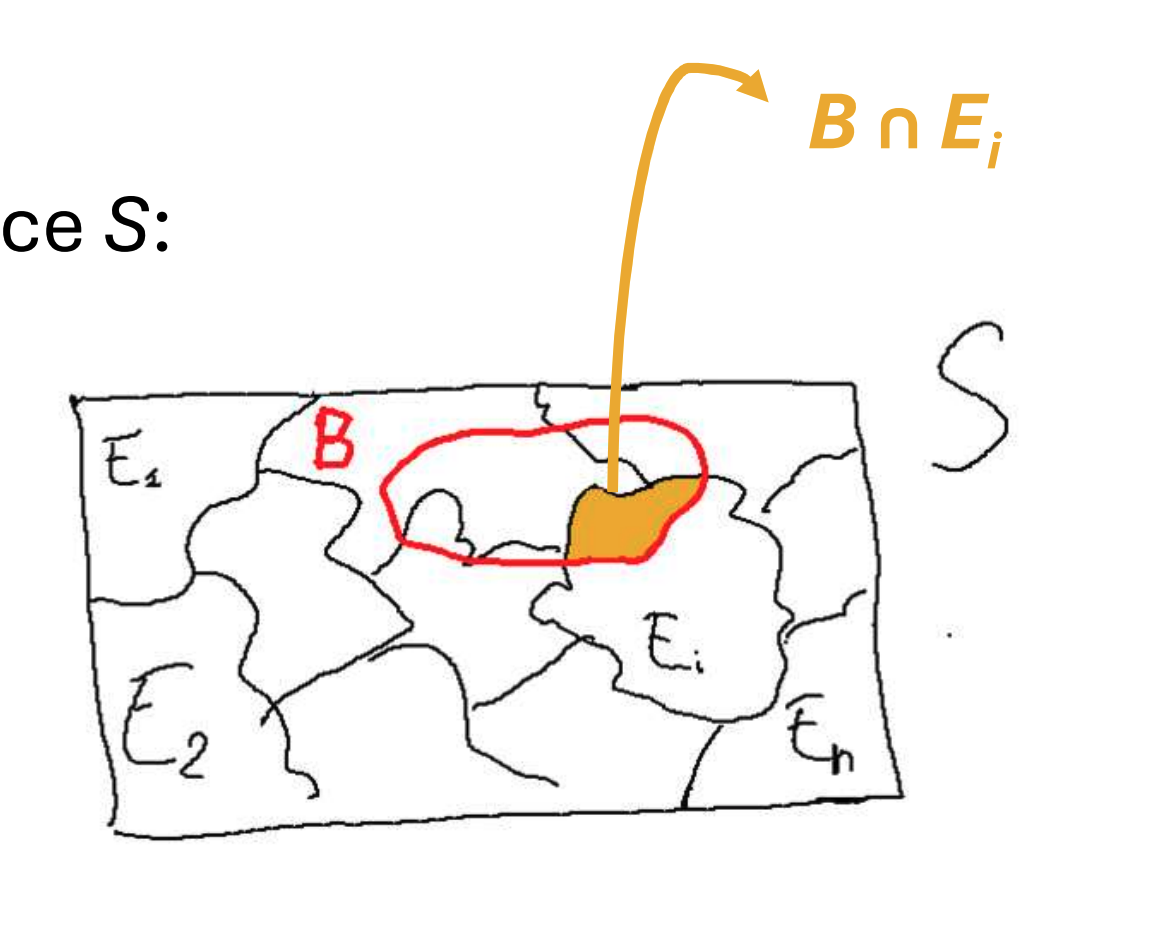 B ∩ Eᵢ
ce S:
S
B
E₁
Eᵢ
E₂
Eₙ